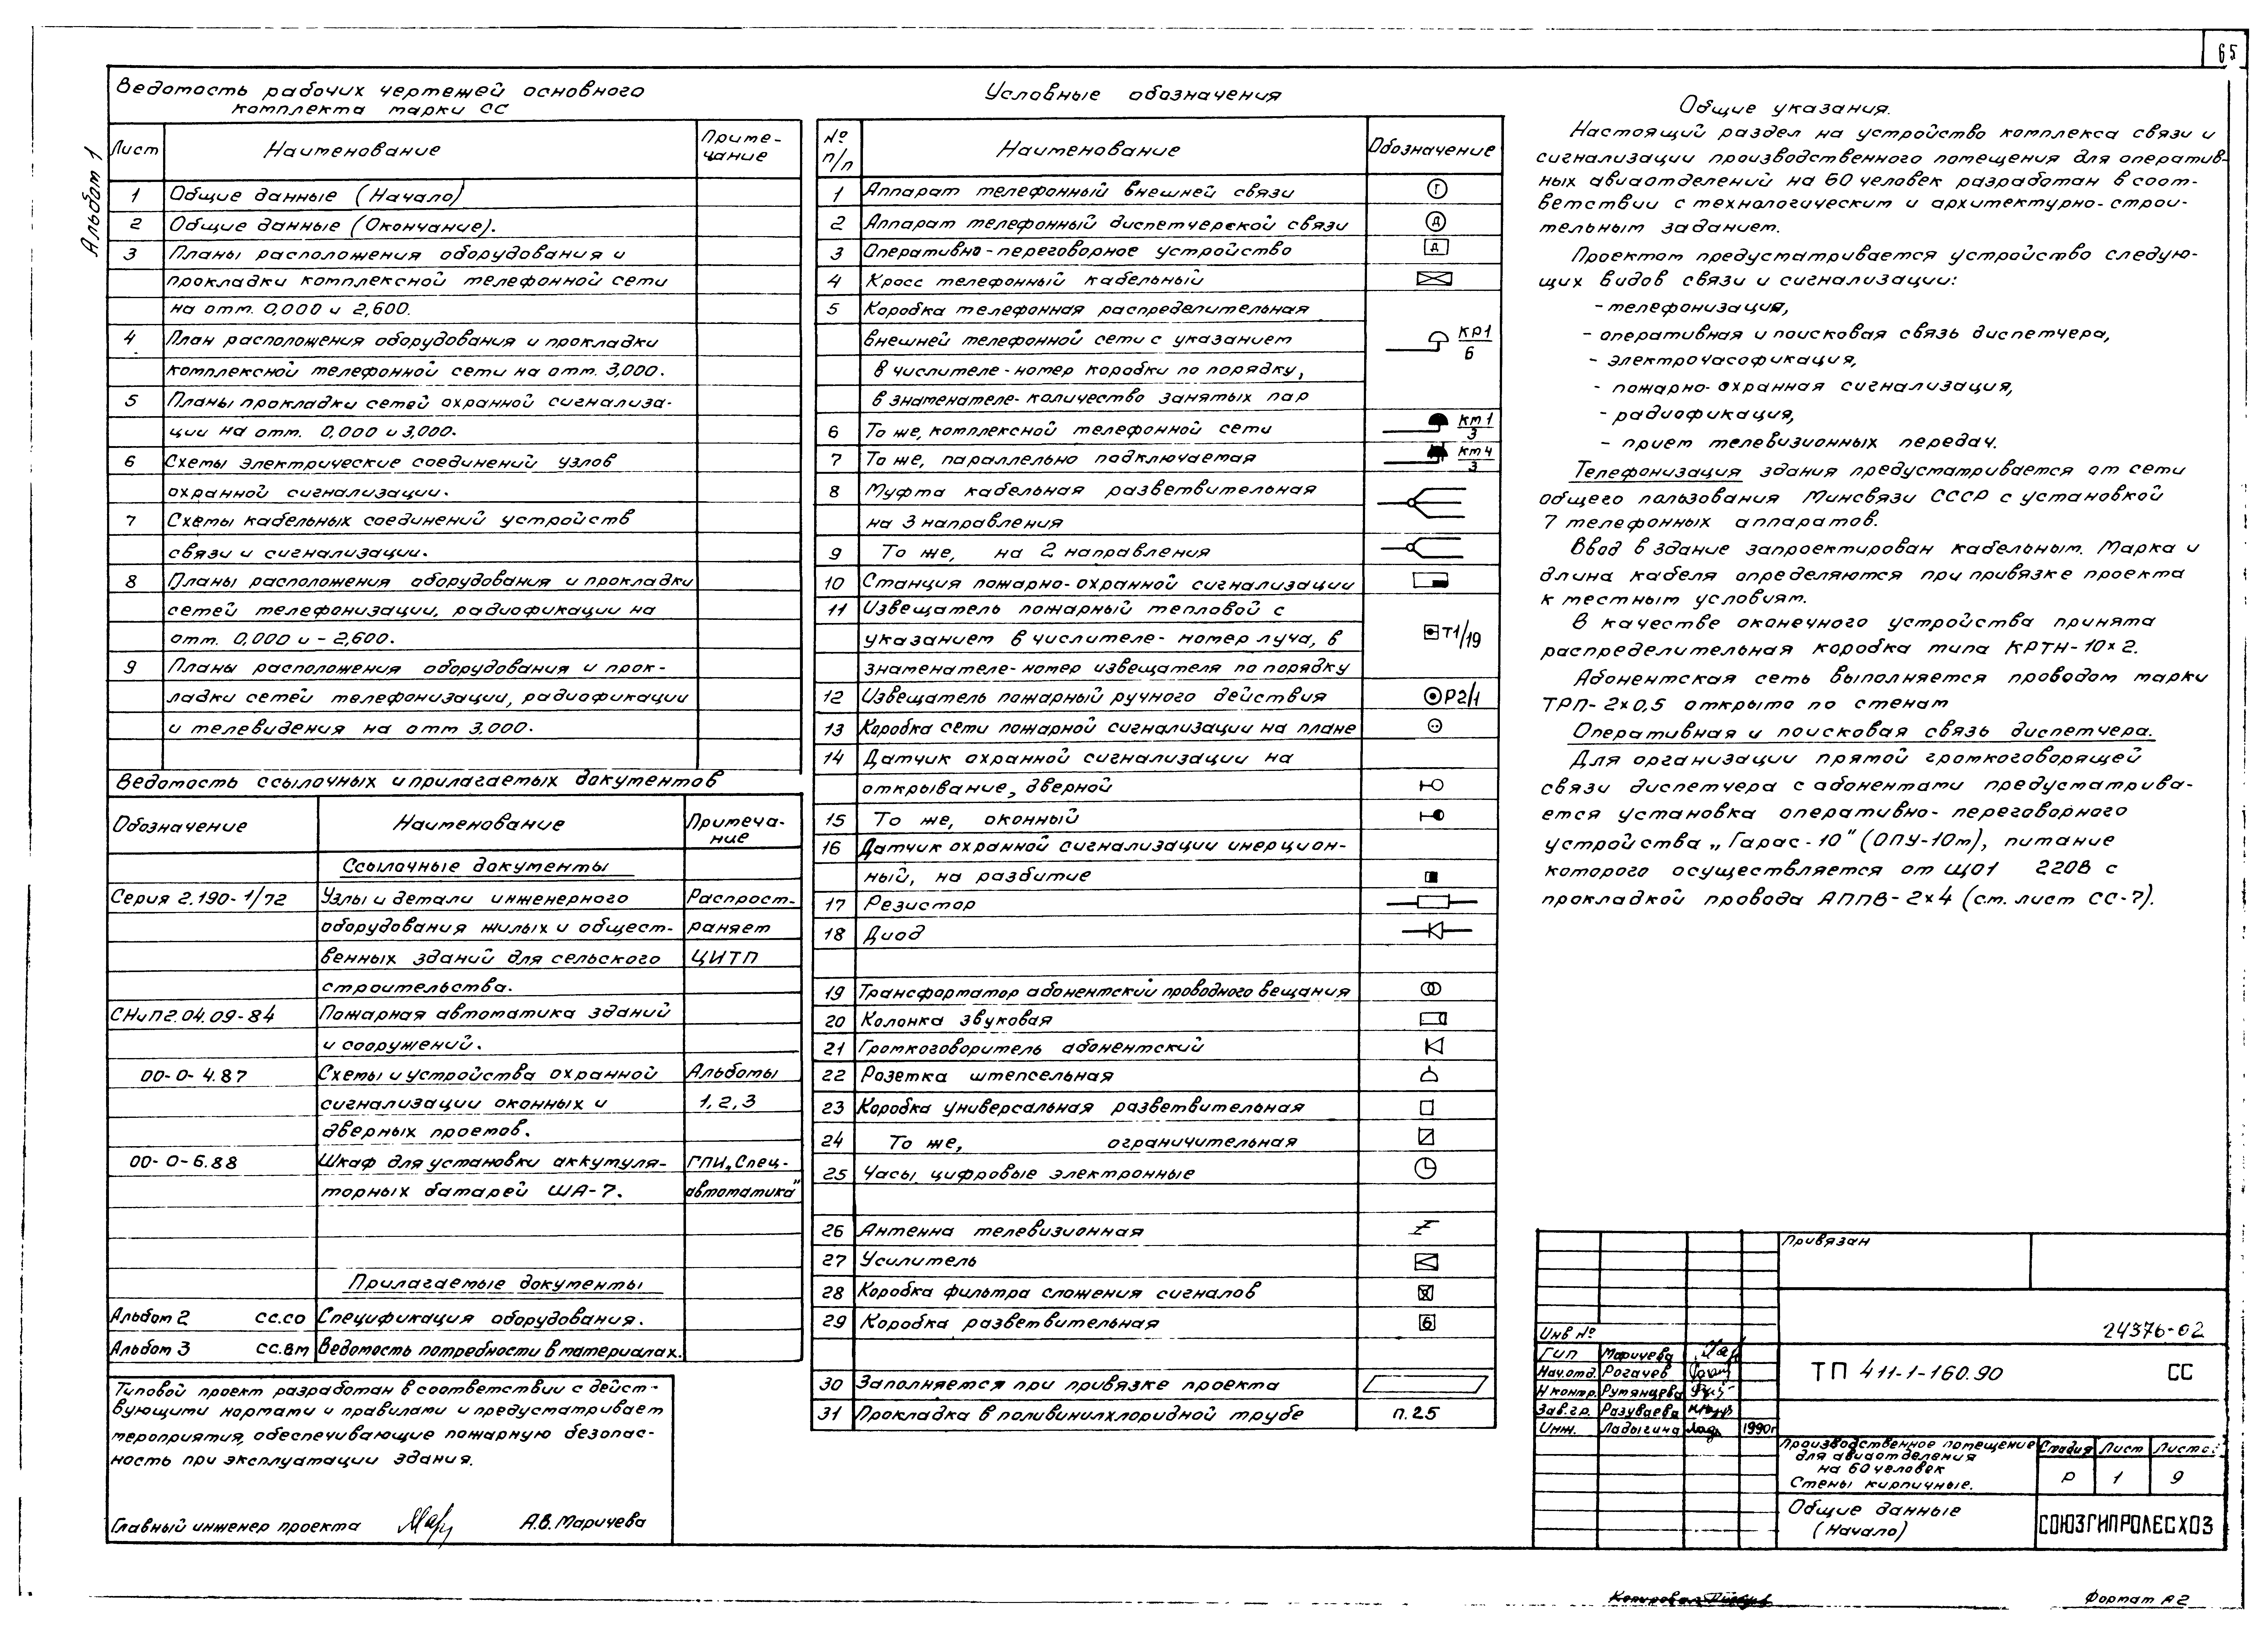 65
Альбом 1
Ведомость рабочих чертежей основного
комплекта марки СС
Лист Наименование Приме-
чание
1 Общие данные (Начало)
2 Общие данные (Окончание).
3 Планы расположения оборудования и
прокладки комплексной телефонной сети
на отм. 0,000 и 2,600.
4 План расположения оборудования и прокладки
комплексной телефонной сети на отм. 3,000.
5 Планы прокладки сетей охранной сигнализа-
ции на отм. 0,000 и 3,000.
6 Схемы электрические соединений узлов
охранной сигнализации.
7 Схемы кабельных соединений устройств
связи и сигнализации.
8 Планы расположения оборудования и прокладки
сетей телефонизации, радиофикации на
отм. 0,000 и -2,600.
9 Планы расположения оборудования и прок-
ладки сетей телефонизации, радиофикации
и телевидения на отм 3,000.
Ведомость ссылочных и прилагаемых документов
Обозначение Наименование Примеча-
ние
Ссылочные документы
Серия 2.190-1/72 Узлы и детали инженерного Распрост-
оборудования жилых и общест- раняет
венных зданий для сельского ЦИТП
строительства.
СНиП2.04.09-84 Пожарная автоматика зданий
и сооружений.
00-0-4.87 Схемы и устройства охранной Альбомы
сигнализации оконных и 1,2,3
дверных проемов.
00-0-6.88 Шкаф для установки аккумуля- ГПИ„Спец-
торных батарей ША-7. автоматика"
Прилагаемые документы
Альбом 2 СС.СО Спецификация оборудования.
Альбом 3 СС.ВМ Ведомость потребности в материалах.
Типовой проект разработан в соответствии с дейст-
вующими нормами и правилами и предусматривает
мероприятия, обеспечивающие пожарную безопас-
ность при эксплуатации здания.
Главный инженер проекта А.В. Маричева
Условные обозначения
№
п/п Наименование Обозначение
1 Аппарат телефонный внешней связи Г
2 Аппарат телефонный диспетчерской связи Д
3 Оперативно-переговорное устройство Д
4 Кросс телефонный кабельный
5 Коробка телефонная распределительная
внешней телефонной сети с указанием КР1
6
в числителе-номер коробки по порядку,
в знаменателе-количество занятых пар
6 То же, комплексной телефонной сети КМ1
3
7 То же, параллельно подключаемая КМ4
3
8 Муфта кабельная разветвительная
на 3 направления
9 То же, на 2 направления
10 Станция пожарно-охранной сигнализации
11 Извещатель пожарный тепловой с
указанием в числителе-номер луча, в Т1/19
знаменателе-номер извещателя по порядку
12 Извещатель пожарный ручного действия Р2/1
13 Коробка сети пожарной сигнализации на плане
14 Датчик охранной сигнализации на
открывание, дверной
15 То же, оконный
16 Датчик охранной сигнализации инерцион-
ный, на разбитие
17 Резистор
18 Диод
19 Трансформатор абонентский проводного вещания
20 Колонка звуковая
21 Громкоговоритель абонентский
22 Розетка штепсельная
23 Коробка универсальная разветвительная
24 То же, ограничительная
25 Часы цифровые электронные
26 Антенна телевизионная
27 Усилитель
28 Коробка фильтра сложения сигналов
29 Коробка разветвительная 6
30 Заполняется при привязке проекта
31 Прокладка в поливинилхлоридной трубе п.25
Общие указания.
Настоящий раздел на устройство комплекса связи и
сигнализации производственного помещения для оператив-
ных авиаотделений на 60 человек разработан в соот-
ветствии с технологическим и архитектурно-строи-
тельным заданием.
Проектом предусматривается устройство следую-
щих видов связи и сигнализации:
- телефонизация,
- оперативная и поисковая связь диспетчера,
- электрочасофикация,
- пожарно-охранная сигнализация,
- радиофикация,
- прием телевизионных передач.
Телефонизация здания предусматривается от сети
общего пользования Минсвязи СССР с установкой
7 телефонных аппаратов.
Ввод в здание запроектирован кабельным. Марка и
длина кабеля определяются при привязке проекта
к местным условиям.
В качестве оконечного устройства принята
распределительная коробка типа КРТН-10×2.
Абонентская сеть выполняется проводом марки
ТРП-2×0,5 открыто по стенам
Оперативная и поисковая связь диспетчера.
Для организации прямой громкоговорящей
связи диспетчера с абонентами предусматрива-
ется установка оперативно-переговорного
устройства „Гарас-10" (ОПУ-10м), питание
которого осуществляется от ЩО1 220В с
прокладкой провода АППВ-2×4 (см. лист СС-7).
Привязан
Инв №
24376-02
ГИП Маричева
Нач.отд. Рогачев
Н контр. Румянцева
Зав.гр. Разуваева
Инж. Ладыгина 1990г
ТП 411-1-160.90 СС
Производственное помещение
для авиаотделения
на 60 человек
Стены кирпичные.
Стадия Лист Листов
Р 1 9
Общие данные
(Начало)
СОЮЗГИПРОЛЕСХОЗ
Копировал
Формат А2